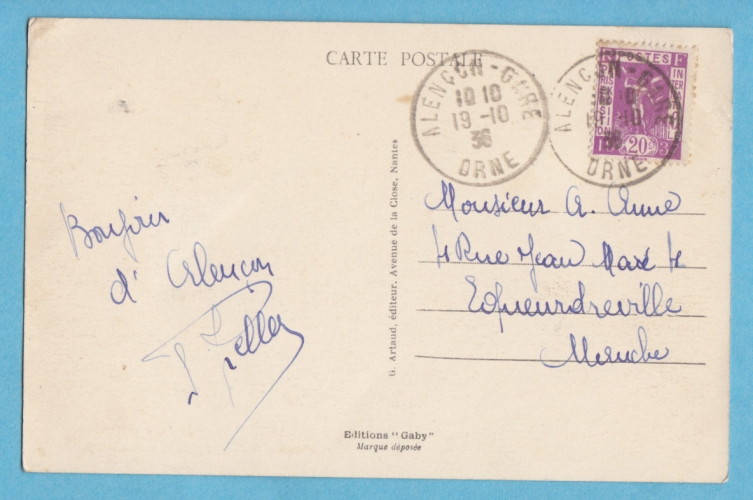 CARTE POSTALE
ALENÇON-GARE
10 10
19-10
36
ORNE
ALENÇON-GARE
19-10
36
ORNE
POSTES
20
Monsieur A. Anne
4 Rue Jean
Equeurdreville
Manche
Bonjour
d'Alençon
G. Artaud, éditeur. Avenue de la Close, Nantes
Editions "Gaby"
Marque déposée